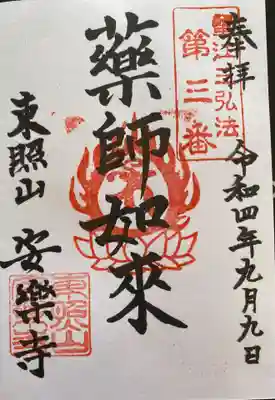 奉拝
令和四年九月九日
蟹江三弘法
第三番
藥師如來
東照山
安樂寺